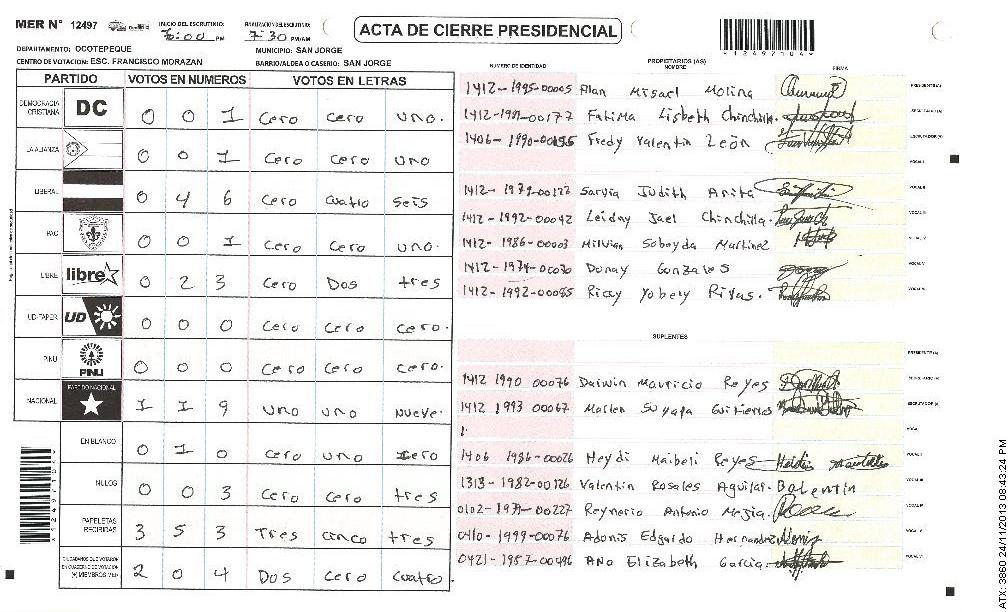 MER N° 12497
INICIO DEL ESCRUTINIO:
PM
FINALIZACION DEL ESCRUTINIO:
7:30 PM/AM
ACTA DE CIERRE PRESIDENCIAL
DEPARTAMENTO: OCOTEPEQUE
MUNICIPIO: SAN JORGE
CENTRO DE VOTACION: ESC. FRANCISCO MORAZAN
BARRIO/ALDEA O CASERIO: SAN JORGE
PARTIDO VOTOS EN NUMEROS VOTOS EN LETRAS
DEMOCRACIA CRISTIANA DC 0 0 1 Cero Cero uno.
LA ALIANZA 0 0 1 Cero Cero uno
LIBERAL 0 4 6 Cero Cuatro Seis
PAC 0 0 1 Cero Cero uno.
LIBRE libre 0 2 3 Cero Dos tres
UD-FAPER UD 0 0 0 Cero Cero Cero.
PINU PINU 0 0 0 Cero Cero Cero.
NACIONAL PARTIDO NACIONAL 1 1 9 uno uno nueve.
EN BLANCO 0 1 0 Cero uno Cero
NULOS 0 0 3 Cero Cero tres
PAPELETAS RECIBIDAS 3 5 3 Tres cinco tres
CIUDADANOS QUE VOTARON EN CUADERNO DE VOTACION (+) MIEMBROS MER 2 0 4 Dos Cero Cuatro.
NUMERO DE IDENTIDAD
PROPIETARIOS (AS)
NOMBRE
FIRMA
1412-1995-00005 Alan Misael Molina PRESIDENTE (A)
Fatima Lisbeth Chinchilla. SECRETARIO (A)
Fredy Valentin León ESCRUTADOR (A)
VOCAL I
Judith VOCAL II
1412-1992-00042 Jael Chinchilla. VOCAL III
1412-1986-00003 Milvian Martinez VOCAL IV
Gonzales VOCAL V
1412-1992-00085 Yobery Rivas. VOCAL VI
SUPLENTES
PRESIDENTE (A)
1412 1990 00076 Darwin Mauricio Reyes SECRETARIO (A)
1412 1993 00067 Marlen Suyapa ESCRUTADOR (A)
VOCAL I
1406-1986-00026 Heydi Maibeli Reyes VOCAL II
1313-1982-00126 Valentin Rosales Aguilar. Balentin VOCAL III
Reynerio Antonio Mejia. VOCAL IV
0410-1999-00076 Adonis Edgardo Hernandez VOCAL V
0421-1957-00496 Ana Elizabeth Garcia VOCAL VI
ATX: 3860 24/11/2013 08:43:24 PM